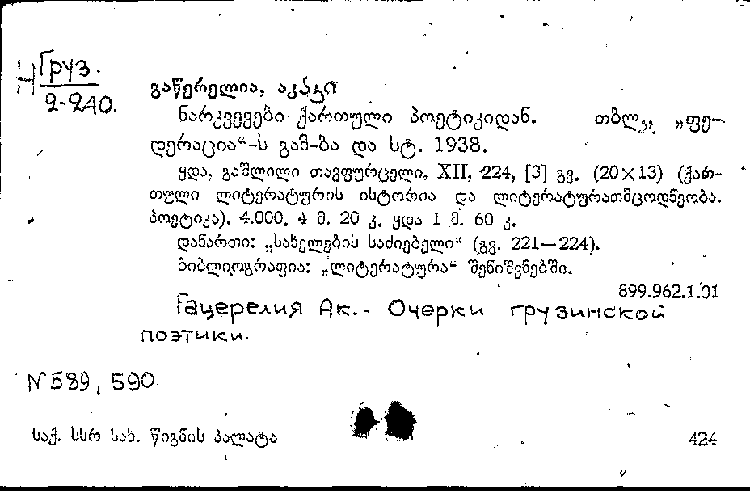 Н Груз.
2-240.
გაწერელია, აკაკი
ნარკვევები ქართული პოეტიკიდან. თბლ., „ფე-
დერაცია“-ს გამ-ბა და სტ. 1938.
ყდა, გაშლილი თავფურცელი, XII, 224, [3] გვ. (20×13) (ქარ-
თული ლიტერატურის ისტორია და ლიტერატურათმცოდნეობა.
პოეტიკა). 4.000. 4 მ. 20 კ. ყდა 1 მ. 60 კ.
დანართი: „სახელების საძიებელი“ (გვ. 221—224).
ბიბლიოგრაფია: „ლიტერატურა“ შენიშვნებში.
899.962.1.01
Гацерелия Ак.- Очерки грузинской
поэтики.
N 589, 590
საქ. სსრ სახ. წიგნის პალატა
424